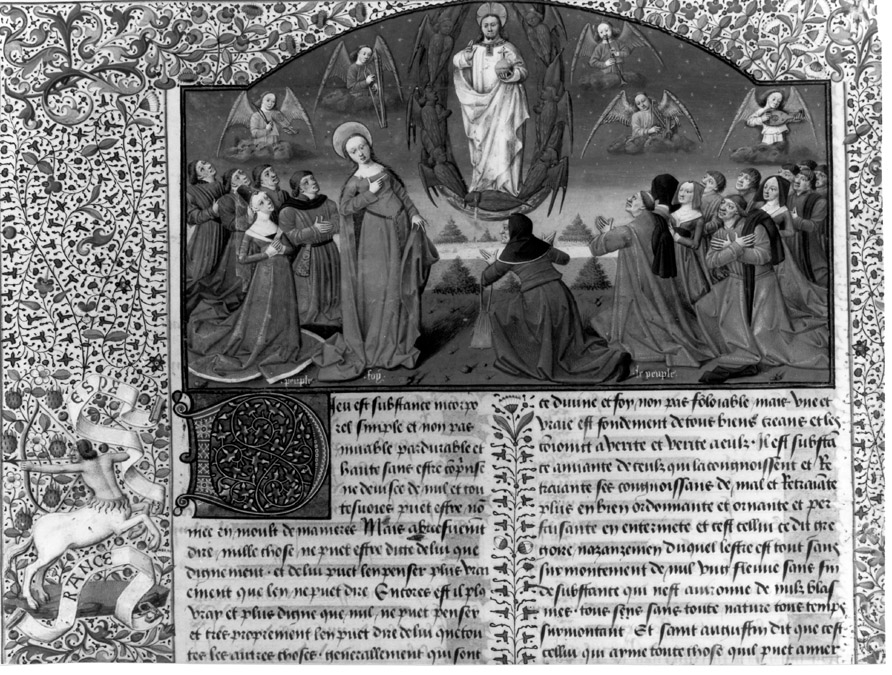 peuple
foy
le peuple
ESPE
RANCE
Dieu est substance incorpo
rel simple et non pas
muable pardurable et
haute sans estre cõprise
ne devisee de nul et tou
tesvoies puet estre nõ
mee en moult de manieres Mais a
dire nulle chose ne puet estre dicte de lui que
dignement et de lui puet len penser plus vrai
ement que len ne puet dire Encores est il plus
vray et plus digne que nul ne puet penser
et tres proprement len puet dire de lui que tou
tes les autres choses generallement qui sont
ce divine et foy non pas solorable mais vne et
vraie est fondement de tous biens creans et les
coioinct a verite et verite a eulx Il est substã
ce amiante de ceulx qui la congnoissent et Re
traiante ses congnoissans de mal et Retraiãte
plus en bien ordonnante et ornante et per
faisante en entermete et cest cellui ce dit gre
goire nazanzemen duquel lestre est tout sans
surmontement de nul vng fleuue sans fin
de substance qui nest auronne de nulz blas
mes tous sens sans toute nature tous temps
surmontant Et saint augustin dit que cest
cellui qui ayme toute chose quil puet aymer